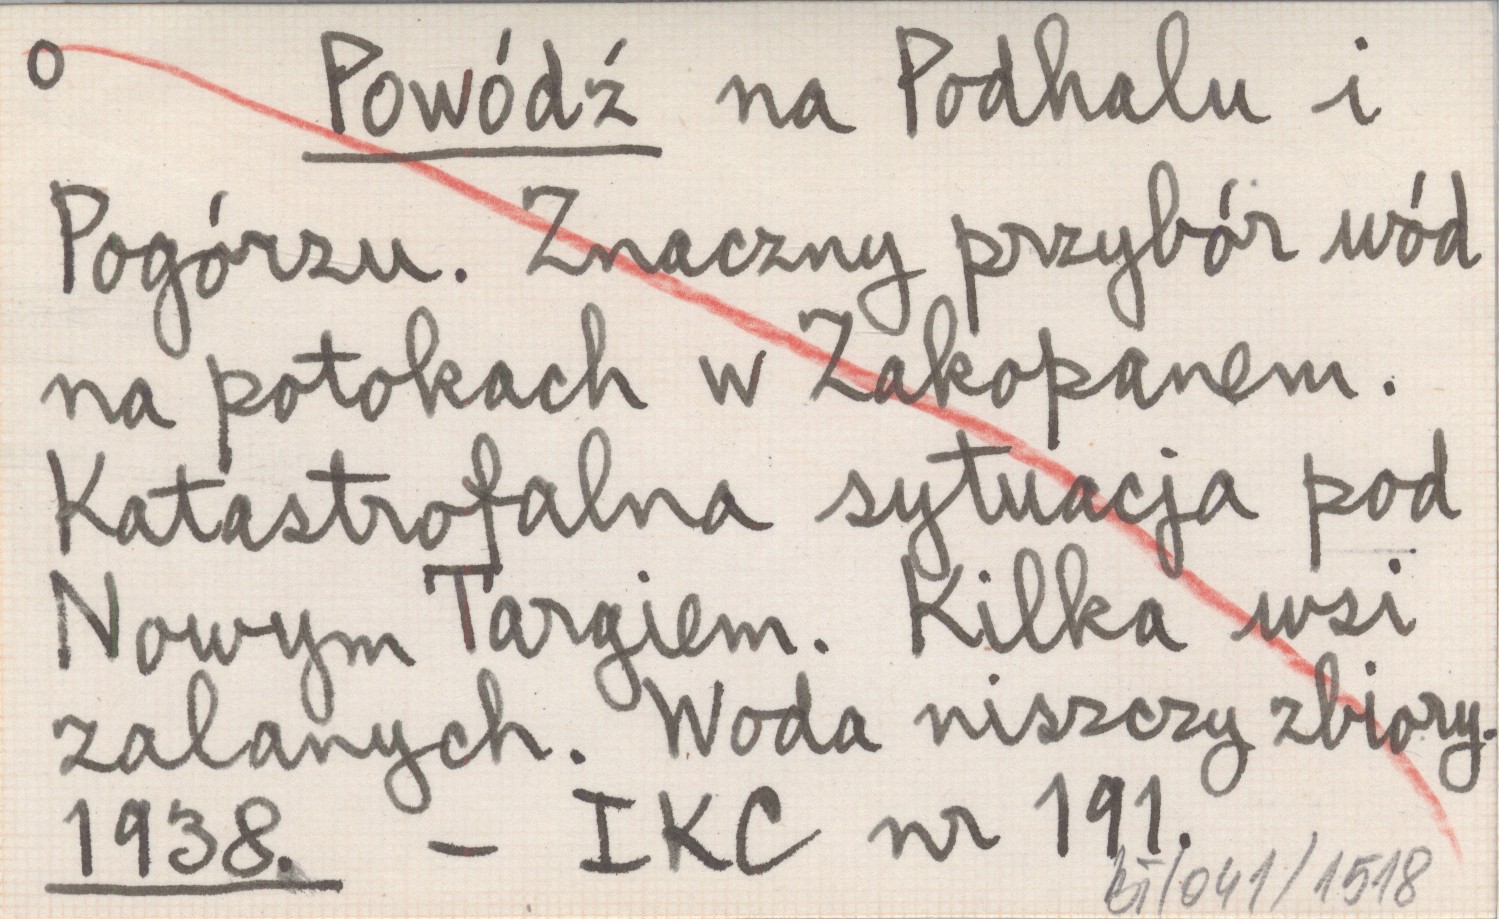 o Powódź na Podhalu i
Pogórzu. Znaczny przybór wód
na potokach w Zakopanem.
Katastrofalna sytuacja pod
Nowym Targiem. Kilka wsi
zalanych. Woda niszczy zbiory.
1938. – IKC nr 191.
/041/1518